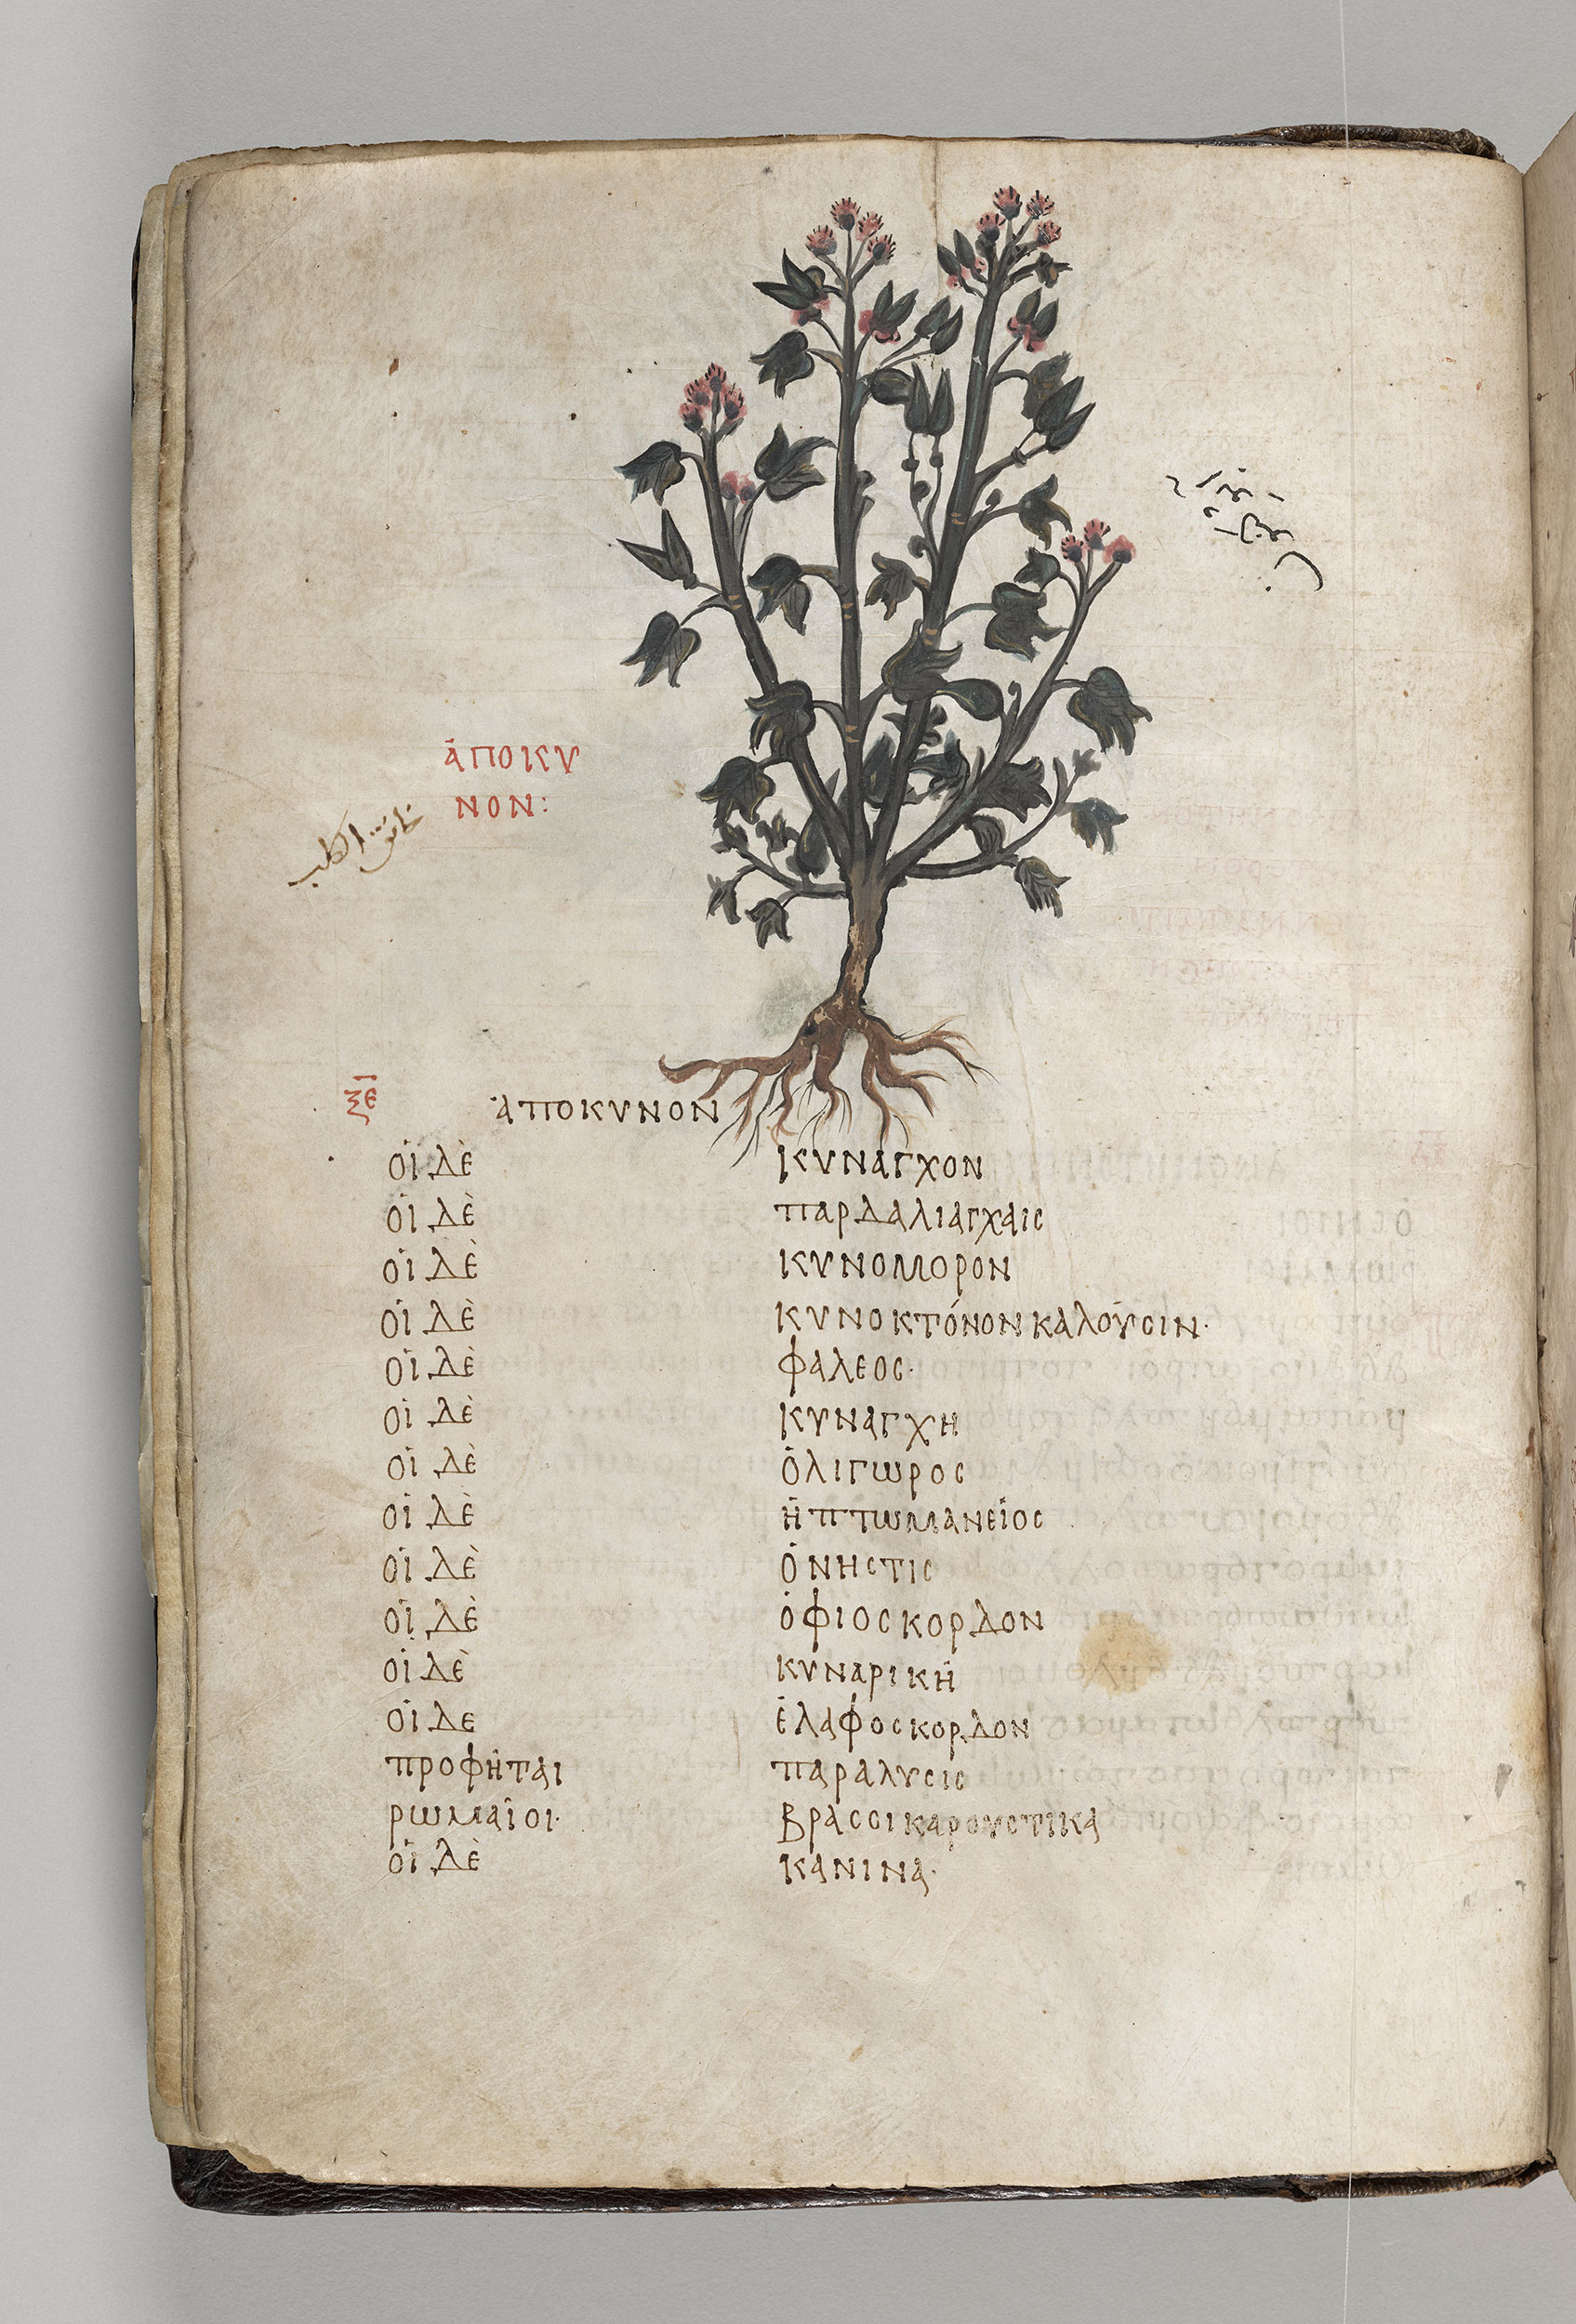 ἀποκυ
νον:
خانق الكلب
ξε ἀποκυνον
οἱ δὲ κυναγχον
οἱ δὲ παρδαλιαγχαις
οἱ δὲ κυνομορον
οἱ δὲ κυνοκτόνον καλοῦσιν·
οἱ δὲ φαλεος·
οἱ δὲ κυναγχη
οἱ δὲ ὀλιγωρος
οἱ δὲ ἡπτωμανεῖος
οἱ δὲ ὀνηστις
οἱ δὲ ὀφιοσκορδον
οἱ δὲ κυναρικὴ
οἱ δε ἐλαφοσκορδον
προφῆται παραλυσις
ρωμαῖοι· βρασσικαρουστικα
οἱ δὲ κανινα·